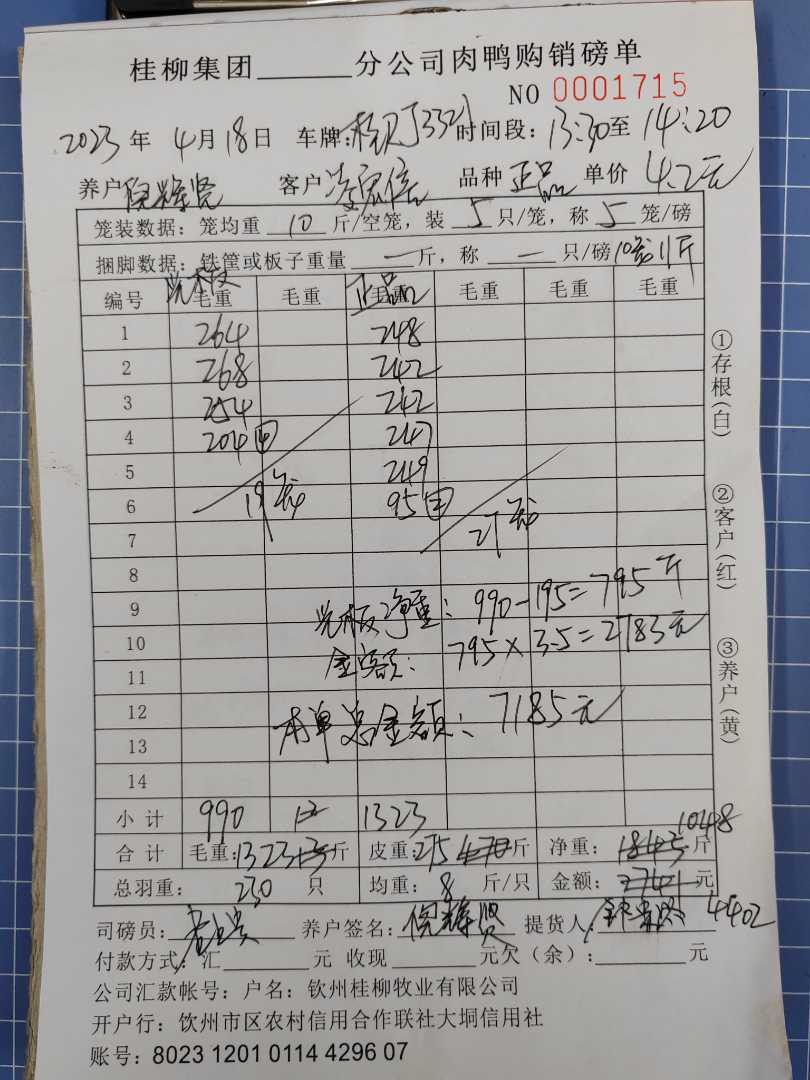 桂柳集团______分公司肉鸭购销磅单
NO 0001715
2023年 4月18日 车牌: J3321 时间段: 13:30至 14:20
养户 倪辉贤 客户 品种 正品 单价 4.2元
笼装数据: 笼均重 10 斤/空笼, 装 5 只/笼, 称 5 笼/磅
捆脚数据: 铁筐或板子重量 — 斤, 称 — 只/磅
光板 正品
编号 毛重 毛重 毛重 毛重 毛重
1 264 248
2 268 242
3 254 242
4 204④ 247
5 249
6 19笼 95② 27笼
7
8
9 光板净重: 990-195=795斤
10 金额: 795×3.5=2783元
11
12 本单总金额: 7185元
13
14
小计 990 1323
合计 毛重: 1323斤 皮重: 275斤 净重: 1048斤
总羽重: 230 只 均重: 8 斤/只 金额: 4402元
司磅员: 养户签名: 倪辉贤 提货人:
付款方式: 汇______元 收现______元欠(余):______元
公司汇款帐号: 户名: 钦州桂柳牧业有限公司
开户行: 钦州市区农村信用合作联社大垌信用社
账号: 8023 1201 0114 4296 07
①存根(白)
②客户(红)
③养户(黄)